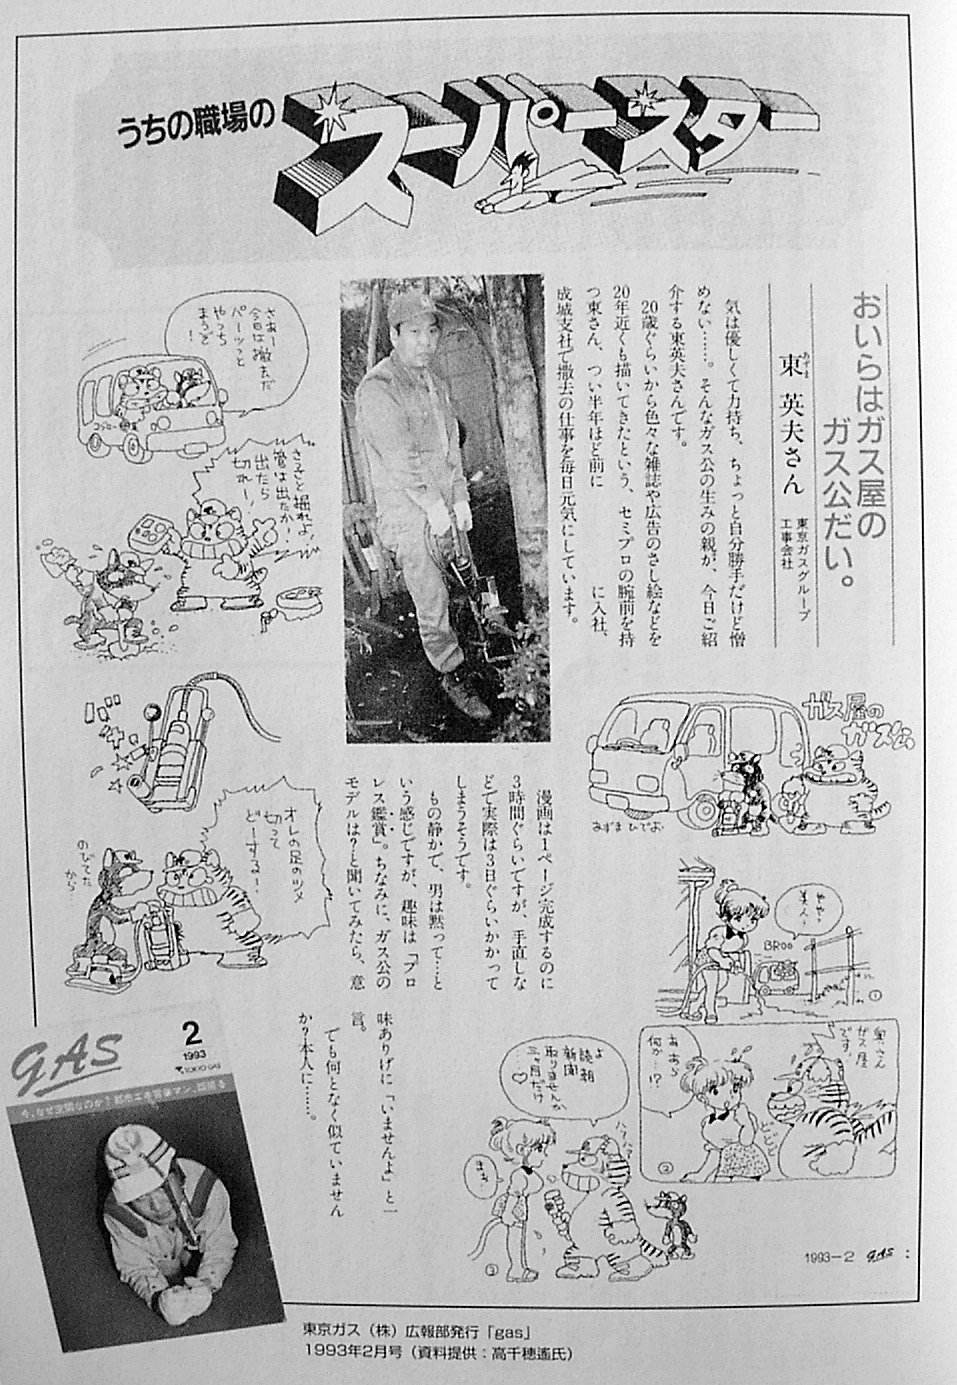 うちの職場の
スーパースター
おいらはガス屋の
ガス公だい。
東 英夫さん
あずま
東京ガスグループ
工事会社
気は優しくて力持ち、ちょっと自分勝手だけど憎
めない……。そんなガス公の生みの親が、今日ご紹
介する東英夫さんです。
20歳ぐらいから色々な雑誌や広告のさし絵などを
20年近くも描いてきたという、セミプロの腕前を持
つ東さん、つい半年ほど前に　　　　に入社、
成城支社で撤去の仕事を毎日元気にしています。
漫画は1ページ完成するのに
3時間ぐらいですが、手直しな
どで実際は3日ぐらいかかって
しまうそうです。
もの静かで、男は黙って……と
いう感じですが、趣味は「プロ
レス鑑賞」。ちなみに、ガス公の
モデルは?と聞いてみたら、意
味ありげに「いませんよ」と一
言。
でも何となく似ていません
か?本人に……。
さあー
今日は撤去だ
パーッと
やっち
まうぞ
!
さっさと掘れよ!
管は出たか!
出たら
切れー!
オレの足のツメ
切って
どーする!
のびてた
から…
ガス屋の
ガス公
あずま ひでお
やや!
美人!
BROO
①
奥さん
ガス屋
です!
あ あら
何か…!?
②
よ
読朝
新聞
取りませんか
三ヶ月だけ
♡
まあ
③
1993-2 GAS
GAS
2
1993
TOKYO GAS
東京ガス（株）広報部発行「gas」
1993年2月号（資料提供：高千穂遙氏）